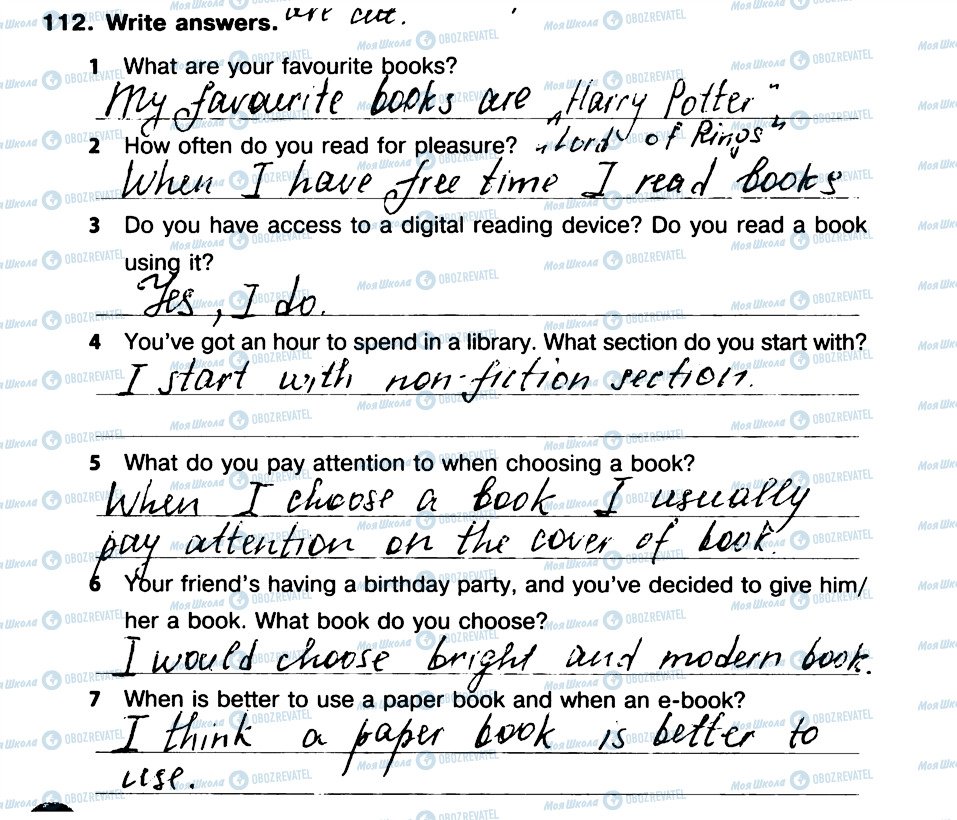 112. Write answers. are
1 What are your favourite books?
My favourite books are „Harry Potter"
„Lord of Rings"
2 How often do you read for pleasure?
When I have free time I read books
3 Do you have access to a digital reading device? Do you read a book
using it?
Yes, I do.
4 You've got an hour to spend in a library. What section do you start with?
I start with non-fiction section.
5 What do you pay attention to when choosing a book?
When I choose a book I usually
pay attention on the cover of book.
6 Your friend's having a birthday party, and you've decided to give him/
her a book. What book do you choose?
I would choose bright and modern book.
7 When is better to use a paper book and when an e-book?
I think a paper book is better to
use.
Моя Школа OBOZREVATEL